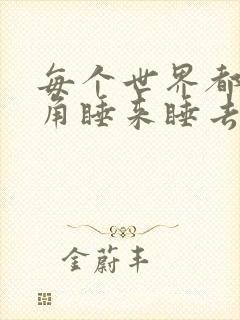 每个世界都
角睡来睡去
金蔚丰